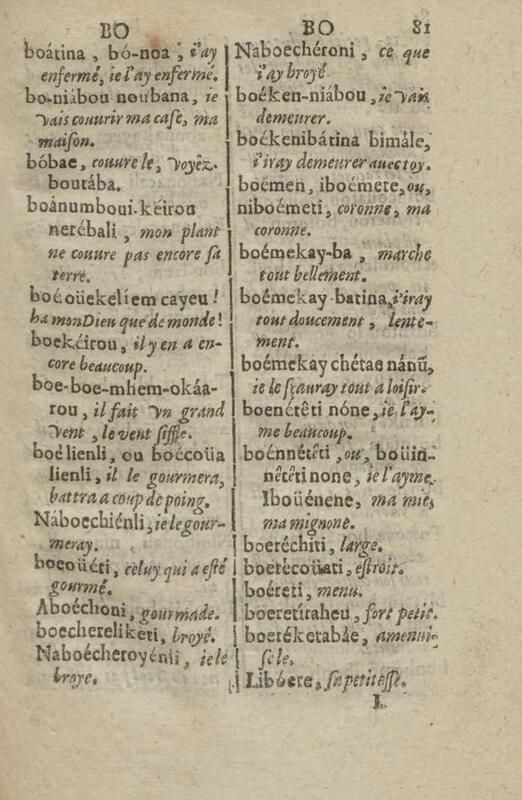 BO
boátina, bó-noa, i'ay
enfermé, ie l'ay enfermé.
bo-niábou noubana, ie
vais couurir ma case, ma
maison.
bóbae, couure le, voyêz
boutába.
boànumboui-kéirou
netébali, mon plant
ne couure pas encore sa
terre.
boéoüekeliem cayeu!
ha mon Dieu que de monde!
boekéirou, il y en a en-
core beaucoup.
boe-boe-mhem-okáa-
rou, il fait vn grand
vent, le vent siffle.
boélienli, ou boécoüa
lienli, il le gourmera,
battra a coup de poing.
Náboechiénli, ie le gour-
meray.
boeoüéti, celuy qui a esté
gourmé.
Aboéchoni, gourmade.
boechereliketi, broyé.
Naboécheroyénli, ie le
broye.
BO 81
Naboechéroni, ce que
i'ay broyé
boéken-niábou, ie vais
demeurer.
boékenibátina bimále,
i'iray demeurer auec toy.
boëmen, iboémete, ou,
niboémeti, coronne, ma
coronne.
boémekay-ba, marche
tout bellement.
boémekay-batina, i'iray
tout doucement, lente-
ment.
boémekay chétae nánũ,
ie le sçauray tout a loisir.
boenétêti nóne, ie l'ay-
me beaucoup.
boénnétêti, ou, boüin-
nêtêti none, ie l'ayme.
Iboüénene, ma mie,
ma mignone.
boeréchiti, large.
boerècoüati, estroit.
boéreti, menu.
boeretiraheu, fort petit.
boeréketabáe, amenui-
se le.
Libóere, sa petitesse.
L